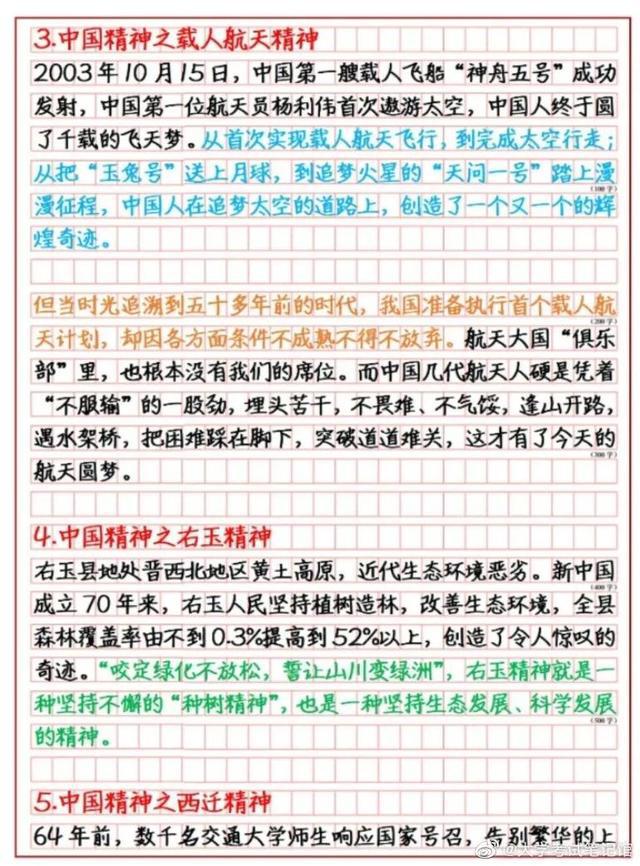 3.中国精神之载人航天精神
2003年10月15日，中国第一艘载人飞船“神舟五号”成功
发射，中国第一位航天员杨利伟首次遨游太空，中国人终于圆
了千载的飞天梦。从首次实现载人航天飞行，到完成太空行走；
从把“玉兔号”送上月球，到追梦火星的“天问一号”踏上漫
(100字)
漫征程，中国人在追梦太空的道路上，创造了一个又一个的辉
煌奇迹。
但当时光追溯到五十多年前的时代，我国准备执行首个载人航
(200字)
天计划，却因各方面条件不成熟不得不放弃。航天大国“俱乐
部”里，也根本没有我们的席位。而中国几代航天人硬是凭着
“不服输”的一股劲，埋头苦干，不畏难、不气馁，逢山开路，
遇水架桥，把困难踩在脚下，突破道道难关，这才有了今天的
(300字)
航天圆梦。
4.中国精神之右玉精神
右玉县地处晋西北地区黄土高原，近代生态环境恶劣。新中国
(400字)
成立70年来，右玉人民坚持植树造林，改善生态环境，全县
森林覆盖率由不到0.3%提高到52%以上，创造了令人惊叹的
奇迹。“咬定绿化不放松，誓让山川变绿洲”，右玉精神就是一
种坚持不懈的“种树精神”，也是一种坚持生态发展、科学发展
(500字)
的精神。
5.中国精神之西迁精神
64年前，数千名交通大学师生响应国家号召，告别繁华的上
@大学考试笔记馆